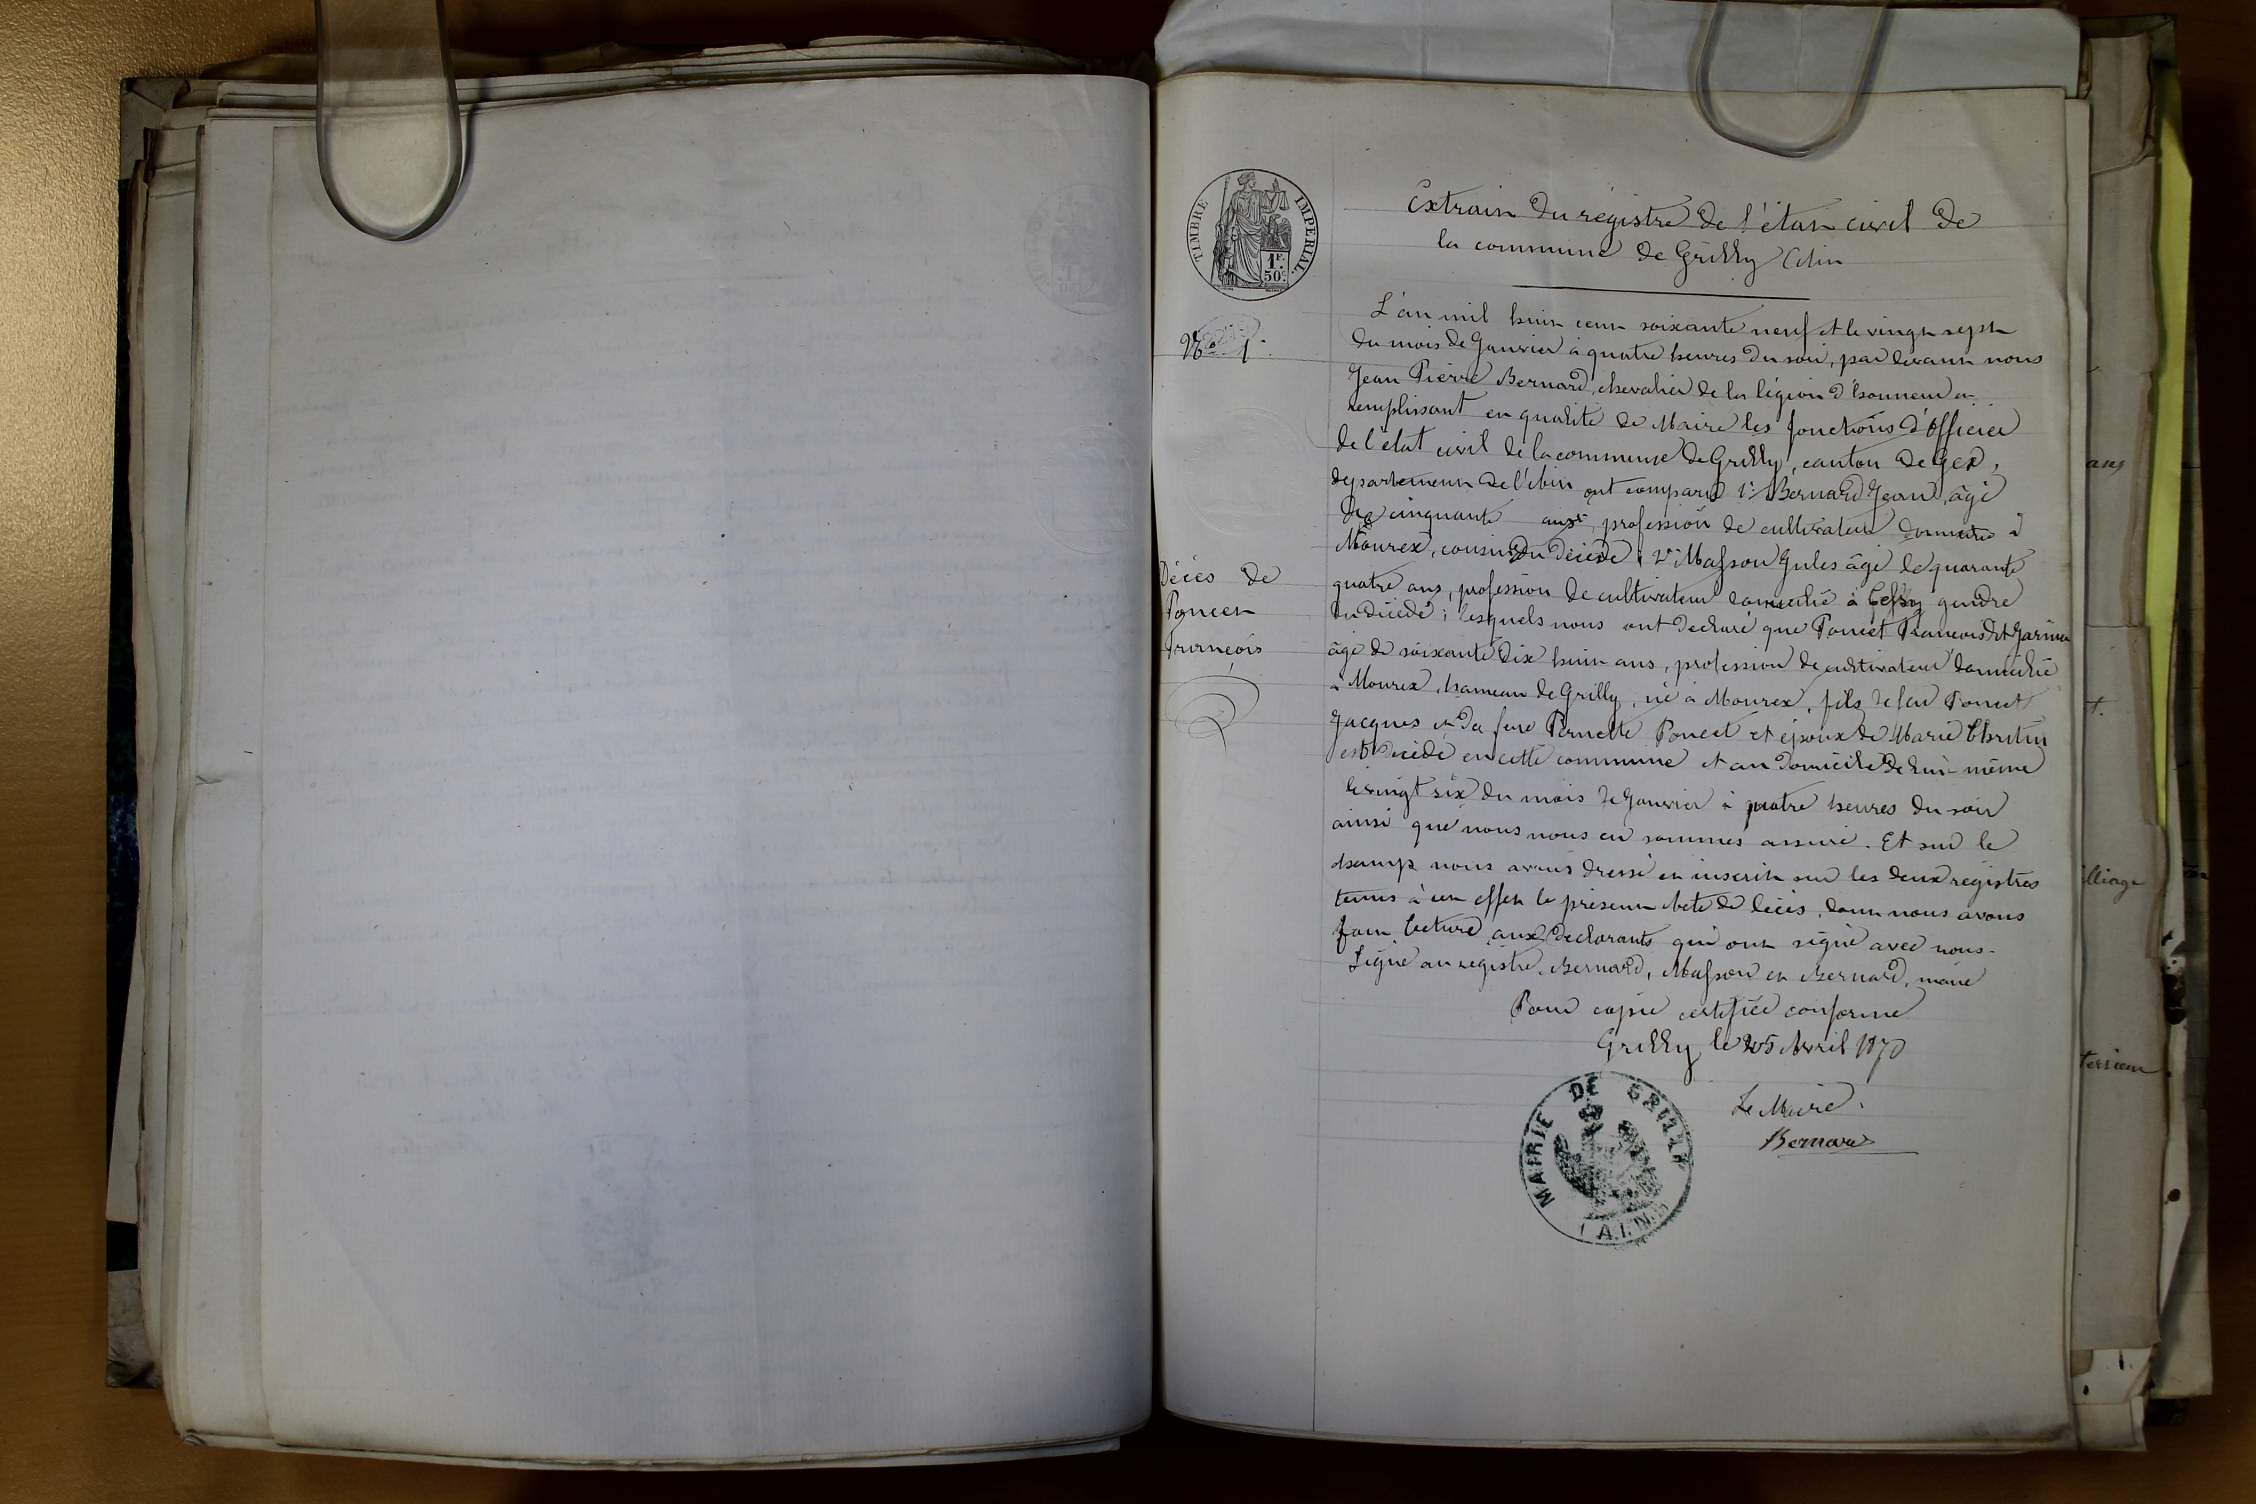 TIMBRE IMPERIAL.
1F.
50c.
Extrait du registre de l'état civil de
la commune de Grilly Ain
No 1
L'an mil huit cent soixante neuf et le vingt sept
du mois de Janvier à quatre heures du soir, par devant nous
Jean Pierre Bernard, chevalier de la légion d'honneur et
remplissant en qualité de Maire les fonctions d'Officier
de l'état civil de la commune de Grilly, canton de Gex,
département de l'Ain ont comparu 1° Bernard Jean, âgé
de cinquante ans, profession de cultivateur domicilié à
Mourex, cousin du décédé, 2° Masson Jules âgé de quarante
quatre ans, profession de cultivateur domicilié à Cessy gendre
du décédé; lesquels nous ont déclaré que Poncet François dit
âgé de soixante dix huit ans, profession de cultivateur domicilié
à Mourex, hameau de Grilly, né à Mourex, fils de feu Poncet
Jacques et de feue Pernette Poncet et époux de Marie
est décédé en cette commune et au domicile de lui-même
le vingt six du mois de Janvier à quatre heures du soir
ainsi que nous nous en sommes assuré. Et sur le
champ nous avons dressé et inscrit sur les deux registres
tenus à cet effet le présent Acte de décès, dont nous avons
fait lecture aux déclarants qui ont signé avec nous.
Signé au registre. Bernard, Masson et Bernard, maire
Décès de
Poncet
François
Pour copie certifiée conforme
Grilly le 25 Avril 1870
Le Maire.
Bernard
MAIRIE DE GRILLY
(AIN)
ans
t.
illiage